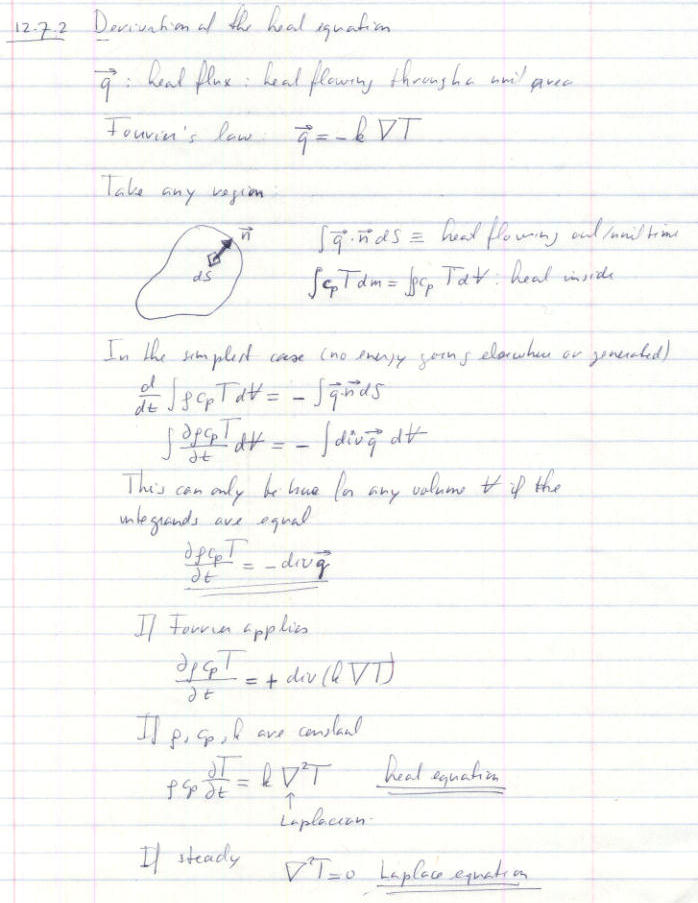 12.7.2 Derivation of the heat equation
q⃗ : heat flux : heat flowing through a unit area
Fourier's law: q⃗ = -k ∇T
Take any region:
n⃗
dS
∫ q⃗ · n⃗ dS ≡ heat flowing out/unit time
∫ cp T dm = ∫ρcp T dV : heat inside
In the simplest case (no energy going elsewhere or generated)
d/dt ∫ ρ cp T dV = - ∫ q⃗·n⃗ dS
∫ ∂ρcpT/∂t dV = - ∫ div q⃗ dV
This can only be true for any volume V if the
integrands are equal
∂ρcpT/∂t = - div q⃗
If Fourier applies
∂ρcpT/∂t = + div (k ∇T)
If ρ, cp, k are constant
ρ cp ∂T/∂t = k ∇²T heat equation
↑
Laplacian.
If steady ∇²T = 0 Laplace equation